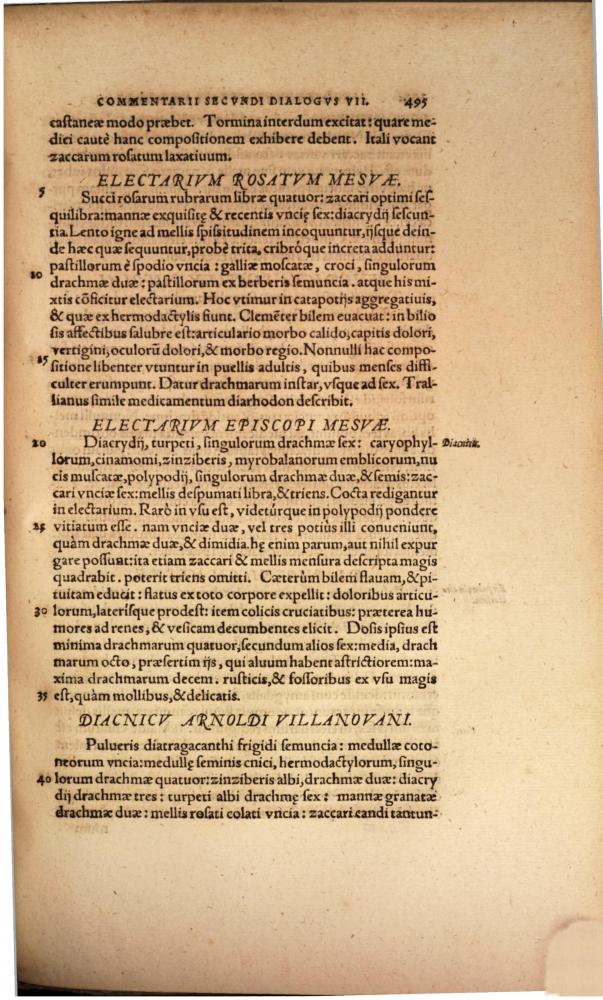 COMMENTARII SECVNDI DIALOGVS VII. 495
caſtaneæ modo præbet. Tormina interdum excitat: quare me-
dici cautè hanc compoſitionem exhibere debent. Itali vocant
zaccarum roſatum laxatiuum.
ELECTARIVM ROSATVM MESVÆ.
5 Succi roſarum rubrarum libræ quatuor: zaccari optimi ſeſ-
quilibra: mannæ exquiſitę & recentis vncię ſex: diacrydij ſeſcun-
tia. Lento igne ad mellis ſpiſsitudinem incoquuntur, ijſque dein-
de hæc quæ ſequuntur, probè trita, cribróque increta adduntur:
paſtillorum è ſpodio vncia: galliæ moſcatæ, croci, ſingulorum
10 drachmæ duæ: paſtillorum ex berberis ſemuncia. atque his mi-
xtis cõficitur electarium. Hoc vtimur in catapotijs aggregatiuis,
& quæ ex hermodactylis fiunt. Clemẽter bilem euacuat: in bilio
ſis affectibus ſalubre eſt: articulario morbo calido, capitis dolori,
vertigini, oculorũ dolori, & morbo regio. Nonnulli hac compo-
15 ſitione libenter vtuntur in puellis adultis, quibus menſes diffi-
culter erumpunt. Datur drachmarum inſtar, vſque ad ſex. Tral-
lianus ſimile medicamentum diarhodon deſcribit.
ELECTARIVM EPISCOPI MESVÆ.
20 Diacrydij, turpeti, ſingulorum drachmæ ſex: caryophyl- Diacnicũ.
lorum, cinamomi, zinziberis, myrobalanorum emblicorum, nu
cis muſcatæ, polypodij, ſingulorum drachmæ duæ, & ſemis: zac-
cari vnciæ ſex: mellis deſpumati libra, & triens. Cocta redigantur
in electarium. Rarò in vſu eſt, videtúrque in polypodij pondere
25 vitiatum eſſe. nam vnciæ duæ, vel tres potiùs illi conueniunt,
quàm drachmæ duæ, & dimidia. hę enim parum, aut nihil expur
gare poſſunt: ita etiam zaccari & mellis menſura deſcripta magis
quadrabit. poterit triens omitti. Cæterùm bilem flauam, & pi-
tuitam educit: flatus ex toto corpore expellit: doloribus articu-
30 lorum, lateriſque prodeſt: item colicis cruciatibus: præterea hu-
mores ad renes, & veſicam decumbentes elicit. Doſis ipſius eſt
minima drachmarum quatuor, ſecundum alios ſex: media, drach
marum octo, præſertim ijs, qui aluum habent aſtrictiorem: ma-
xima drachmarum decem. ruſticis, & foſſoribus ex vſu magis
35 eſt, quàm mollibus, & delicatis.
DIACNICV ARNOLDI VILLANOVANI.
Pulueris diatragacanthi frigidi ſemuncia: medullæ coto-
neorum vncia: medullę ſeminis cnici, hermodactylorum, ſingu-
40 lorum drachmæ quatuor: zinziberis albi, drachmæ duæ: diacry
dij drachmæ tres: turpeti albi drachmę ſex: mannæ granatæ
drachmæ duæ: mellis roſati colati vncia: zaccari candi tantun-